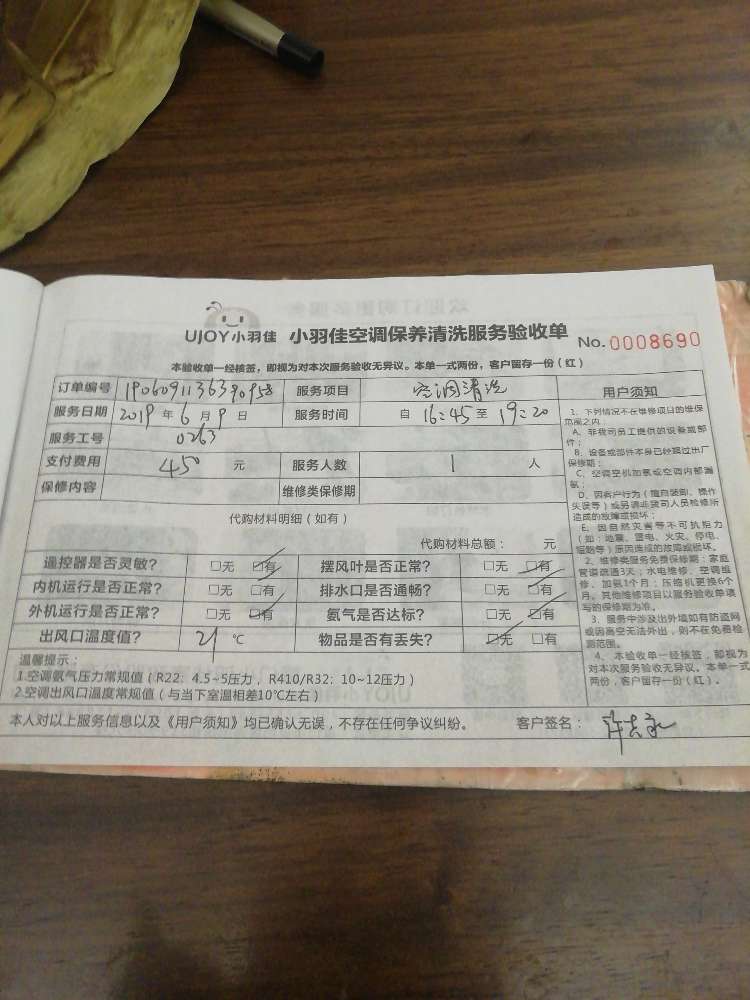 UJOY小羽佳 小羽佳空调保养清洗服务验收单 No.0008690
本验收单一经核签，即视为对本次服务验收无异议。本单一式两份，客户留存一份（红）
订单编号 1906091136390958 服务项目 空调清洗
服务日期 2019年6月9日 服务时间 自16:45至19:20
服务工号 0263
支付费用 450元 服务人数 1人
保修内容 维修类保修期
代购材料明细（如有）
代购材料总额： 元
遥控器是否灵敏? □无 □有 摆风叶是否正常? □无 □有
内机运行是否正常? □无 □有 排水口是否通畅? □无 □有
外机运行是否正常? □无 □有 氨气是否达标? □无 □有
出风口温度值? 21 ℃ 物品是否有丢失? □无 □有
温馨提示：
1.空调氨气压力常规值（R22：4.5~5压力，R410/R32：10~12压力）
2.空调出风口温度常规值（与当下室温相差10℃左右）
本人对以上服务信息以及《用户须知》均已确认无误，不存在任何争议纠纷。 客户签名：
用户须知
1、下列情况不在维修项目的维保
范围之内：
A、非我司员工提供的设备或部
件；
B、设备或部件本身已经超过出厂
保修期；
C、空调空机加氨或空调内部漏
氨；
D、因客户行为（擅自装卸、操作
失误等）或另请非我司人员检修所
造成的故障或损坏；
E、因自然灾害等不可抗拒力
（如：地震、雷电、火灾、停电、
短路等）原因造成的故障或毁坏。
2、维修类服务免费保修期：家庭
管道疏通3天；水电维修、空调维
修、加氨1个月；压缩机更换6个
月。其他维修项目以服务验收单填
写的保修期为准。
3、服务中涉及出外墙如有防盗网
或因高空无法外出，则不在免费检
测范围。
4、本验收单一经核签，即视为
对本次服务验收无异议。本单一式
两份，客户留存一份（红）。